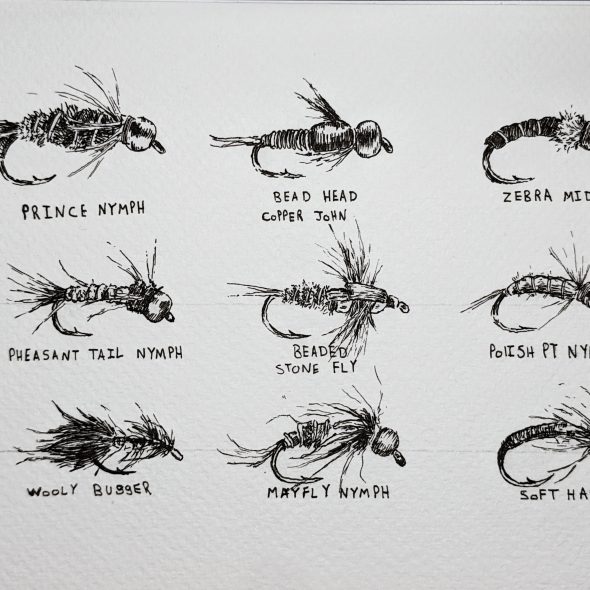 PRINCE NYMPH
BEAD HEAD
COPPER JOHN
ZEBRA MID
PHEASANT TAIL NYMPH
BEADED
STONE FLY
POLISH PT NY
WOOLY BUGGER
MAYFLY NYMPH
SOFT HA